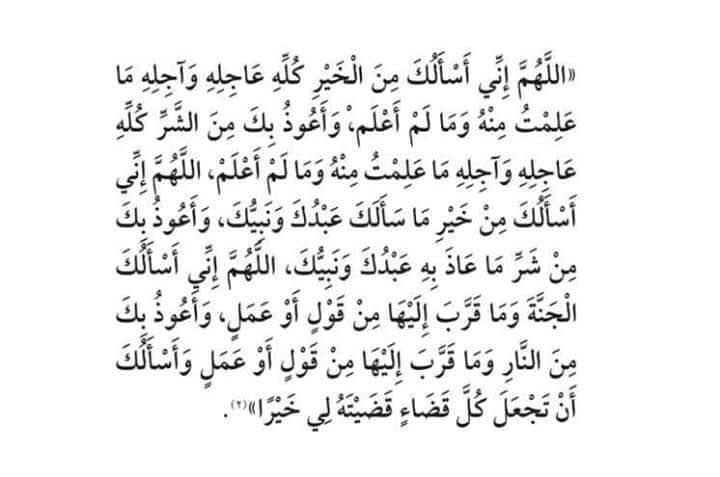 «اللَّهُمَّ إِنِّي أَسْأَلُكَ مِنَ الْخَيْرِ كُلِّهِ عَاجِلِهِ وَآجِلِهِ مَا
عَلِمْتُ مِنْهُ وَمَا لَمْ أَعْلَم،ْ وَأَعُوذُ بِكَ مِنَ الشَّرِّ كُلِّهِ
عَاجِلِهِ وَآجِلِهِ مَا عَلِمْتُ مِنْهُ وَمَا لَمْ أَعْلَمْ، اللَّهُمَّ إِنِّي
أَسْأَلُكَ مِنْ خَيْرِ مَا سَأَلَكَ عَبْدُكَ وَنَبِيُّكَ، وَأَعُوذُ بِكَ
مِنْ شَرِّ مَا عَاذَ بِهِ عَبْدُكَ وَنَبِيُّكَ، اللَّهُمَّ إِنِّي أَسْأَلُكَ
الْجَنَّةَ وَمَا قَرَّبَ إِلَيْهَا مِنْ قَوْلٍ أَوْ عَمَلٍ، وَأَعُوذُ بِكَ
مِنَ النَّارِ وَمَا قَرَّبَ إِلَيْهَا مِنْ قَوْلٍ أَوْ عَمَلٍ وَأَسْأَلُكَ
أَنْ تَجْعَلَ كُلَّ قَضَاءٍ قَضَيْتَهُ لِي خَيْرًا»(٢).